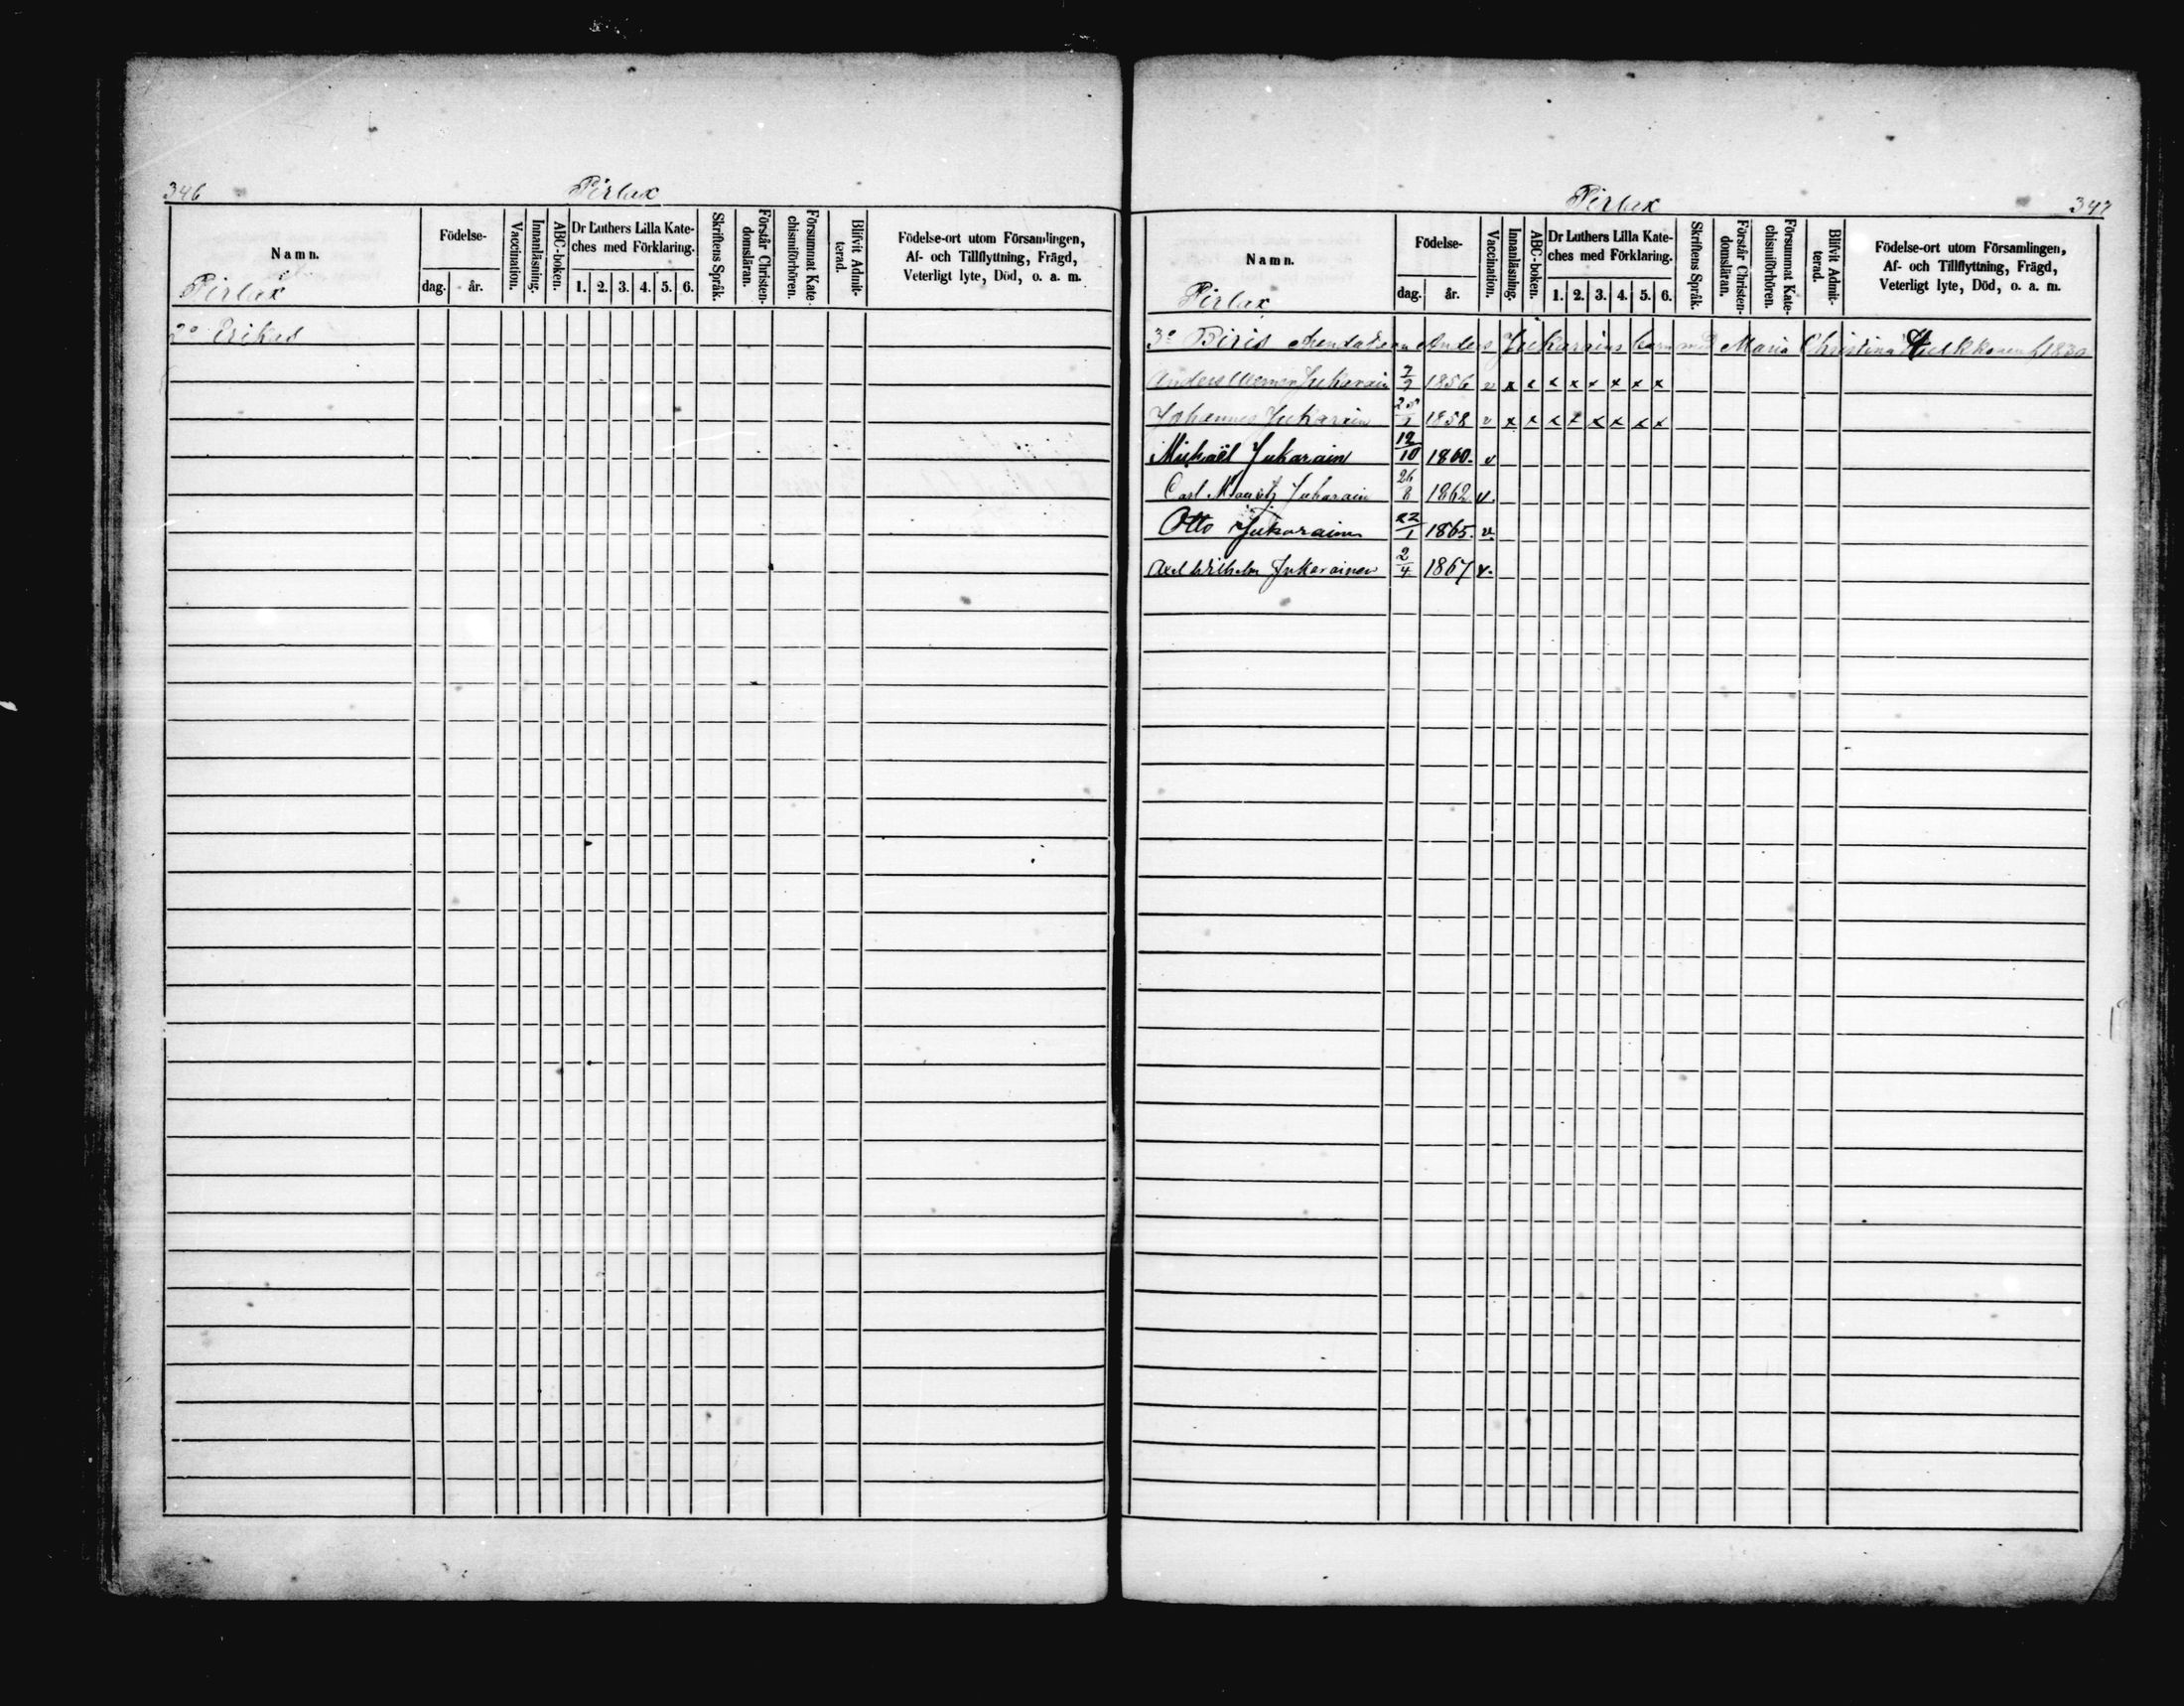 346
Pirlax
Namn.
Födelse-
dag.
år.
Vaccination.
Innanläsning.
ABC-boken.
Dr Luthers Lilla Kate-
ches med Förklaring.
1. 2. 3. 4. 5. 6.
Skriftens Språk.
Förstår Christen-
domsläran.
Försummat Kate-
chismiförhören.
Blifvit Admit-
terad.
Födelse-ort utom Församlingen,
Af- och Tillflyttning, Frägd,
Veterligt lyte, Död, o. a. m.
Pirlax
2o Erikas
Pirlax
347
Namn.
Födelse-
dag.
år.
Vaccination.
Innanläsning.
ABC-boken.
Dr Luthers Lilla Kate-
ches med Förklaring.
1. 2. 3. 4. 5. 6.
Skriftens Språk.
Förstår Christen-
domsläran.
Försummat Kate-
chismiförhören.
Blifvit Admit-
terad.
Födelse-ort utom Församlingen,
Af- och Tillflyttning, Frägd,
Veterligt lyte, Död, o. a. m.
Pirlax
3o Biris Anders Jukarains barn med Maria Christina
Anders Jukarain 1856 v x x x x x x x x
Johannes Jukarain 1858 v x x x x x x x x
Michaël Jukarain 12/10 1860. v
Carl Mauritz Jukarain 26/8 1862 v.
Otto Jukarainen 22/1 1865. v.
Axel Wilhelm Jukarainen 2/4 1867 v.